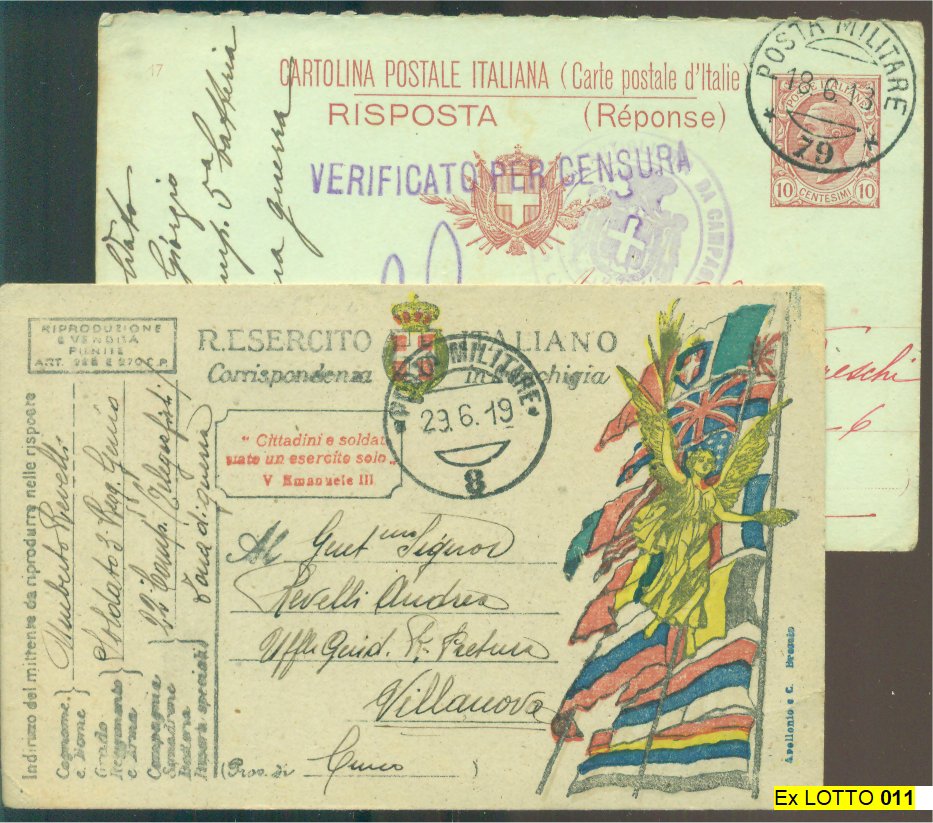 17
CARTOLINA POSTALE ITALIANA (Carte postale d'Italie
RISPOSTA (Réponse)
VERIFICATO PER CENSURA
POSTA MILITARE
18.6.13
79
POSTE ITALIANE
10 CENTESIMI 10
DA CAMPO
Giorgio
guerra
6
RIPRODUZIONE
E VENDITA
PUNITE
ART. 285 E 270 C.P
R. ESERCITO ITALIANO
Corrispondenza in franchigia
POSTA MILITARE
29.6.19
8
" Cittadini e soldat
siate un esercito solo "
V Emanuele III
Indirizzo del mittente da riprodurre nelle risposte
Cognome
e Nome
Umberto Revelli
Grado
Reggimento
e Arma
Soldato 3 Reg. Genio
Compagnia
Squadrone
Batteria
Reparti speciali
22 Comp. Telegrafisti
Zona di guerra
Al Gent mo Signor
Revelli Andrea
Uffle Giud. R. Pretura
Villanova
(Prov. di Cuneo )
Apollonio e C. Brescia
Ex LOTTO 011